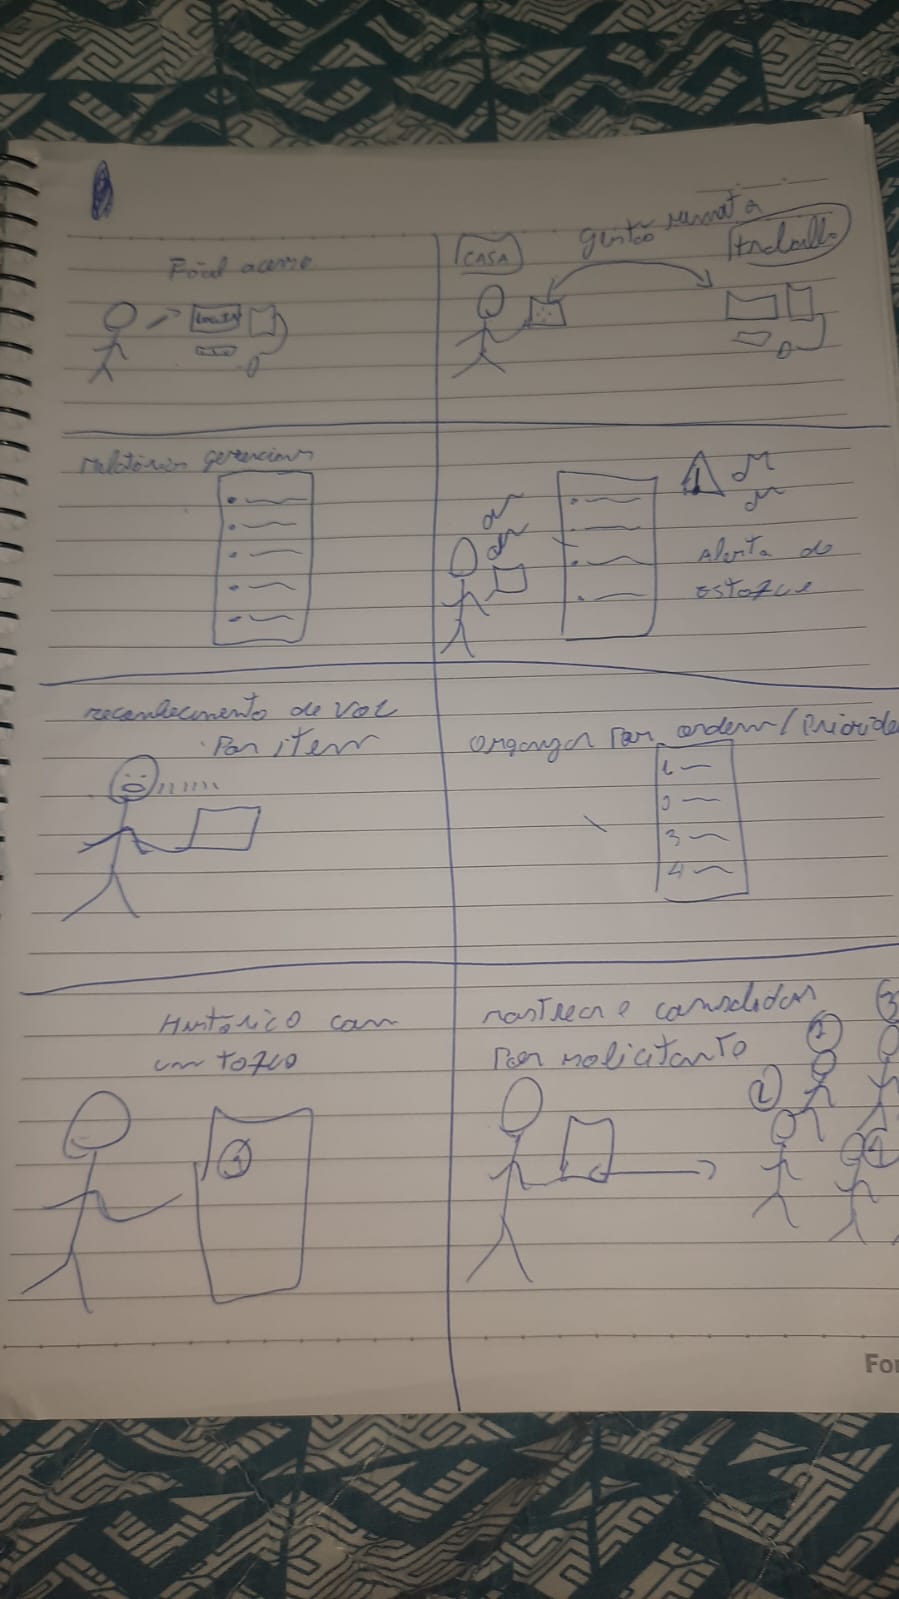 Fácil acesso
CASA
gestão remota
trabalho
Relatórios gerenciais
Alerta de
estoque
reconhecimento de voz
Por item
organizar por ordem / Priorida
1
2
3
4
Histórico com
um toque
rastrear e consolidar
por solicitante
1
2
3
4
For